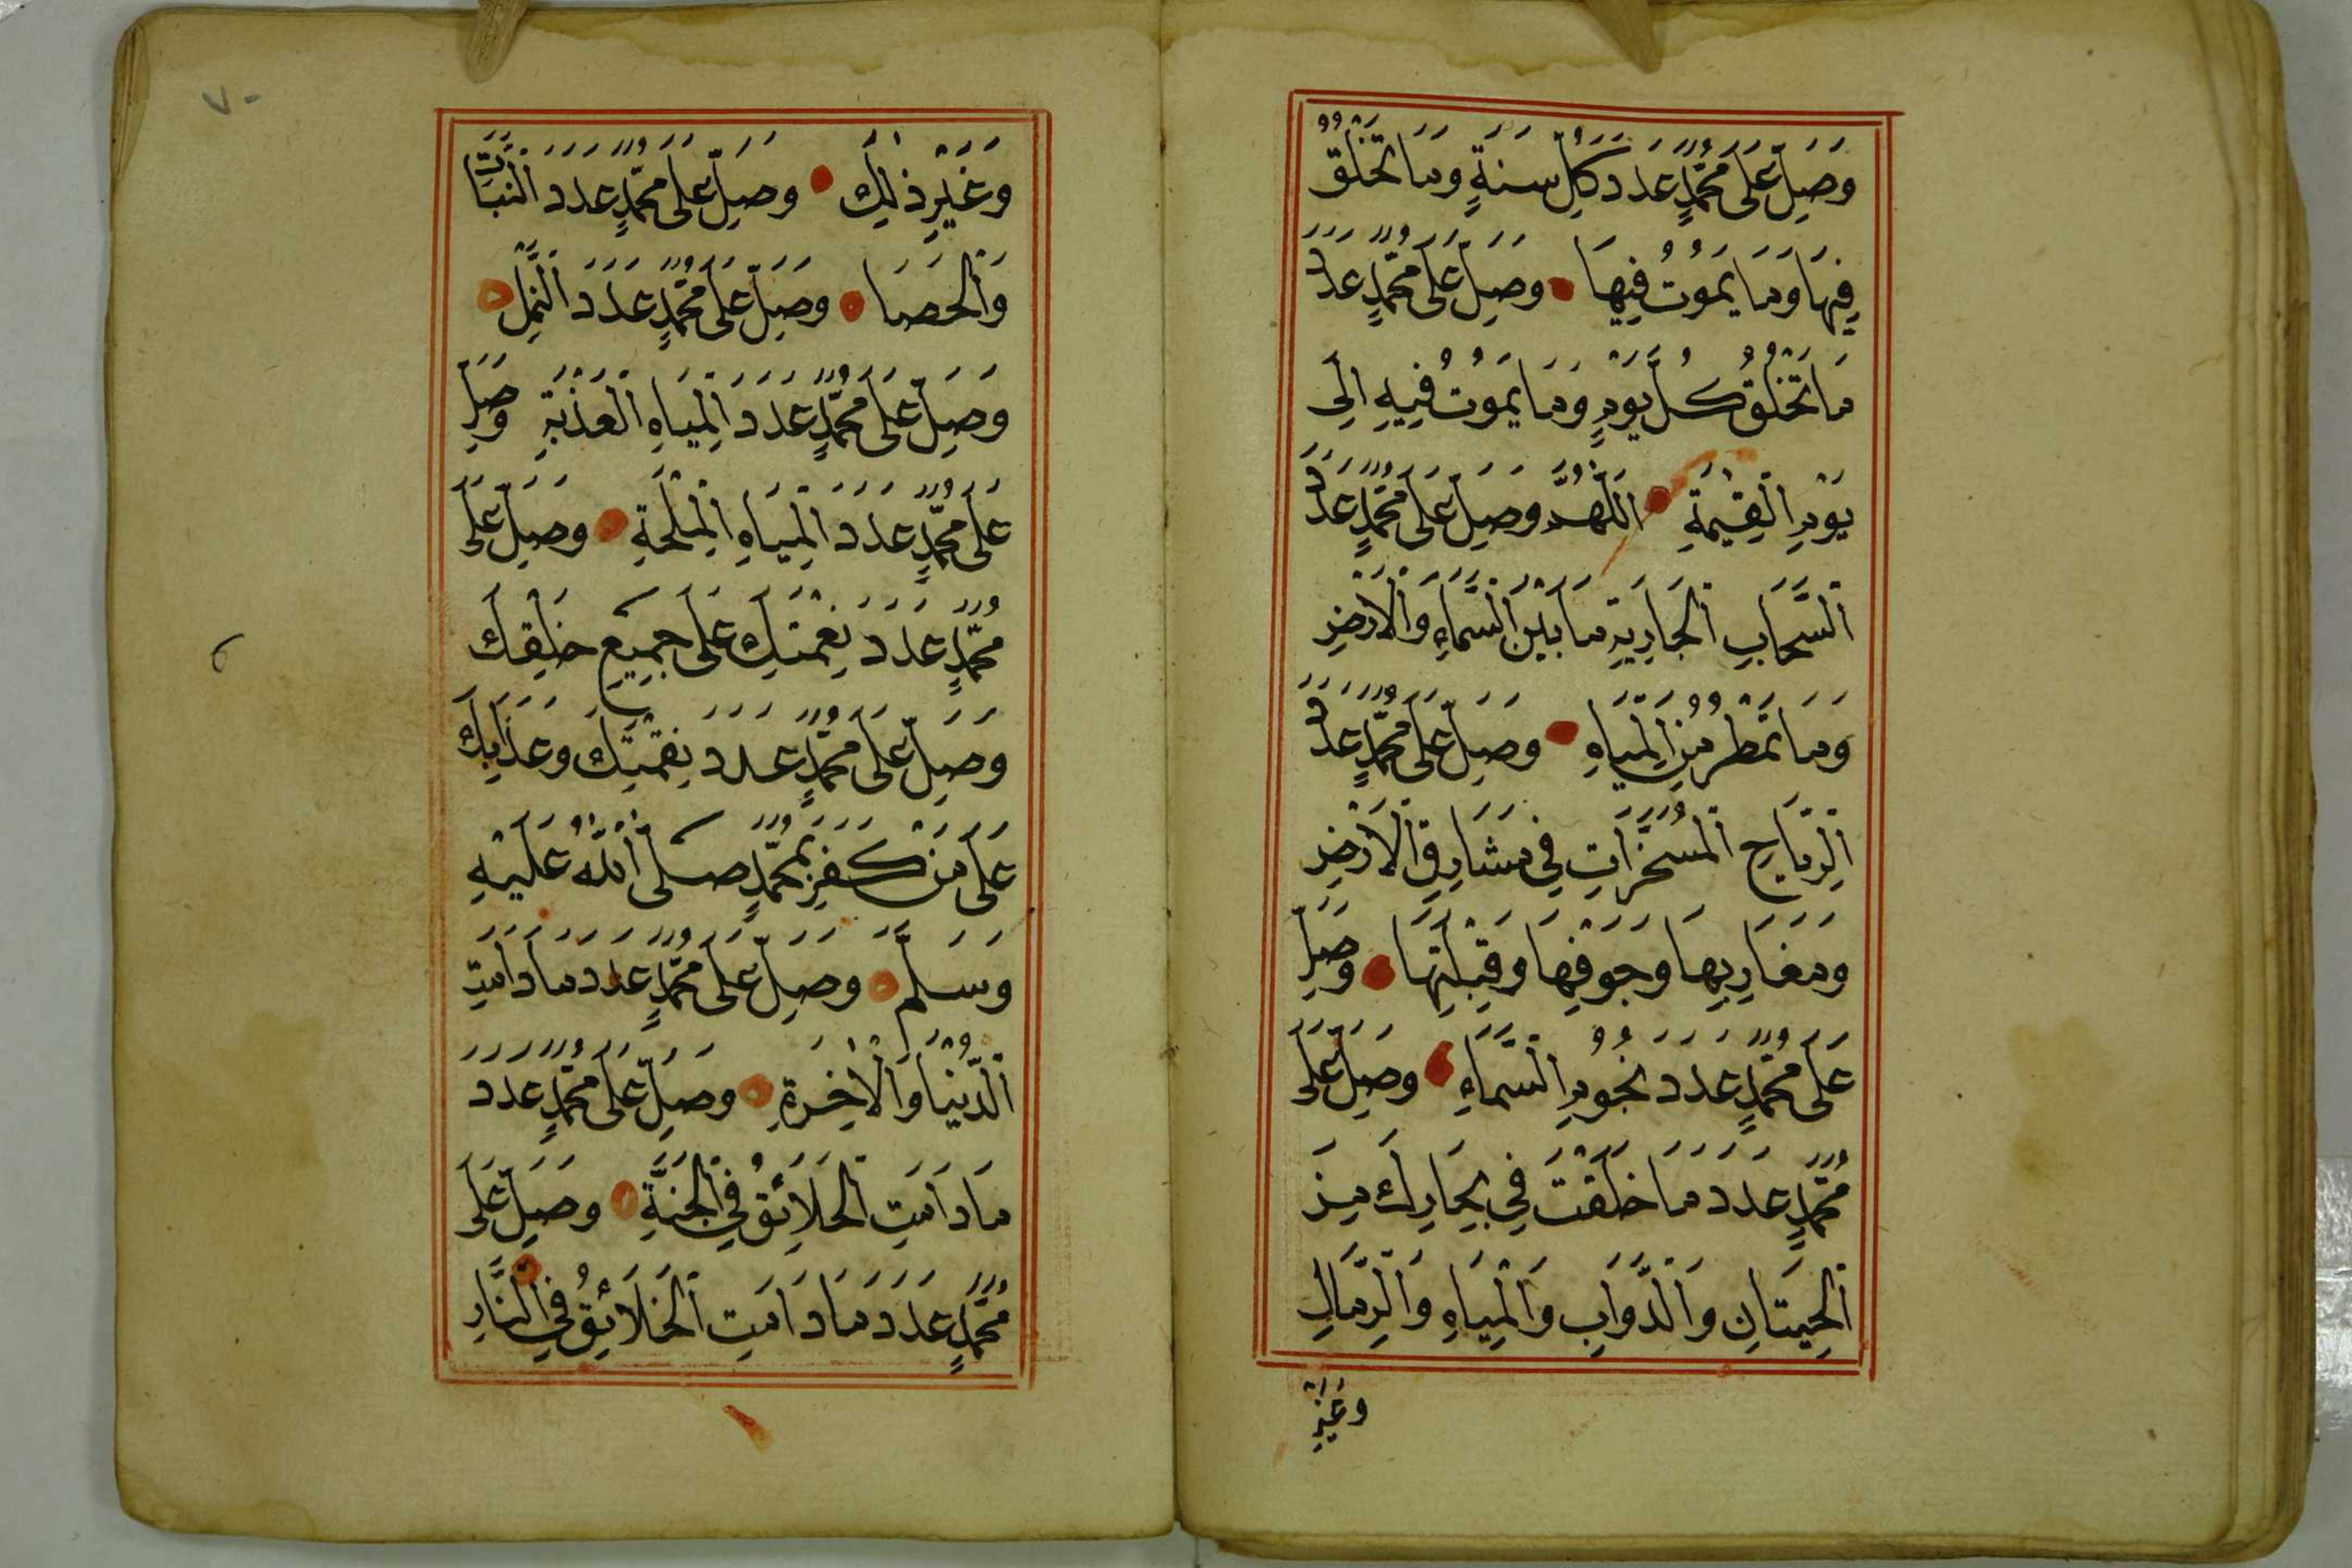 وَصَلِّ عَلَى مُحَمَّدٍ عَدَدَ كُلِّ سَنَةٍ وَمَا تَخْلُقُ
فِيهَا وَمَا يَمُوتُ فِيهَا وَصَلِّ عَلَى مُحَمَّدٍ عَدَدَ
مَا تَخْلُقُ كُلَّ يَوْمٍ وَمَا يَمُوتُ فِيهِ اِلَى
يَوْمِ الْقِيٰمَةِ اَللّٰهُمَّ وَصَلِّ عَلَى مُحَمَّدٍ عَدَدَ
اَلسَّحَابِ الْجَارِيَةِ مَا بَيْنَ السَّمَاءِ وَالْاَرْضِ
وَمَا تَمْطُرُ مِنَ الْمِيَاهِ وَصَلِّ عَلَى مُحَمَّدٍ عَدَدَ
اَلرِّيَاحِ الْمُسَخَّرَاتِ فِي مَشَارِقِ الْاَرْضِ
وَمَغَارِبِهَا وَجَوْفِهَا وَقِبْلَتِهَا وَصَلِّ
عَلَى مُحَمَّدٍ عَدَدَ نُجُومِ السَّمَاءِ وَصَلِّ عَلَى
مُحَمَّدٍ عَدَدَ مَا خَلَقْتَ فِي بِحَارِكَ مِنَ
اَلْحِيتَانِ وَالدَّوَابِّ وَالْمِيَاهِ وَالرِّمَالِ
وَغَيْرِ
٧٠
وَغَيْرِ ذٰلِكَ وَصَلِّ عَلَى مُحَمَّدٍ عَدَدَ النَّبَاتِ
وَالْحَصَا وَصَلِّ عَلَى مُحَمَّدٍ عَدَدَ النَّمْلِ
وَصَلِّ عَلَى مُحَمَّدٍ عَدَدَ الْمِيَاهِ الْعَذْبَةِ وَصَلِّ
عَلَى مُحَمَّدٍ عَدَدَ الْمِيَاهِ الْمِلْحَةِ وَصَلِّ عَلَى
مُحَمَّدٍ عَدَدَ نِعْمَتِكَ عَلَى جَمِيعِ خَلْقِكَ
وَصَلِّ عَلَى مُحَمَّدٍ عَدَدَ نِقْمَتِكَ وَعَذَابِكَ
عَلَى مَنْ كَفَرَ بِمُحَمَّدٍ صَلَّى اللّٰهُ عَلَيْهِ
وَسَلَّمَ وَصَلِّ عَلَى مُحَمَّدٍ عَدَدَ مَا دَامَتِ
اَلدُّنْيَا وَالْاٰخِرَةِ وَصَلِّ عَلَى مُحَمَّدٍ عَدَدَ
مَا دَامَتِ الْخَلَائِقُ فِي الْجَنَّةِ وَصَلِّ عَلَى
مُحَمَّدٍ عَدَدَ مَا دَامَتِ الْخَلَائِقُ فِي النَّارِ